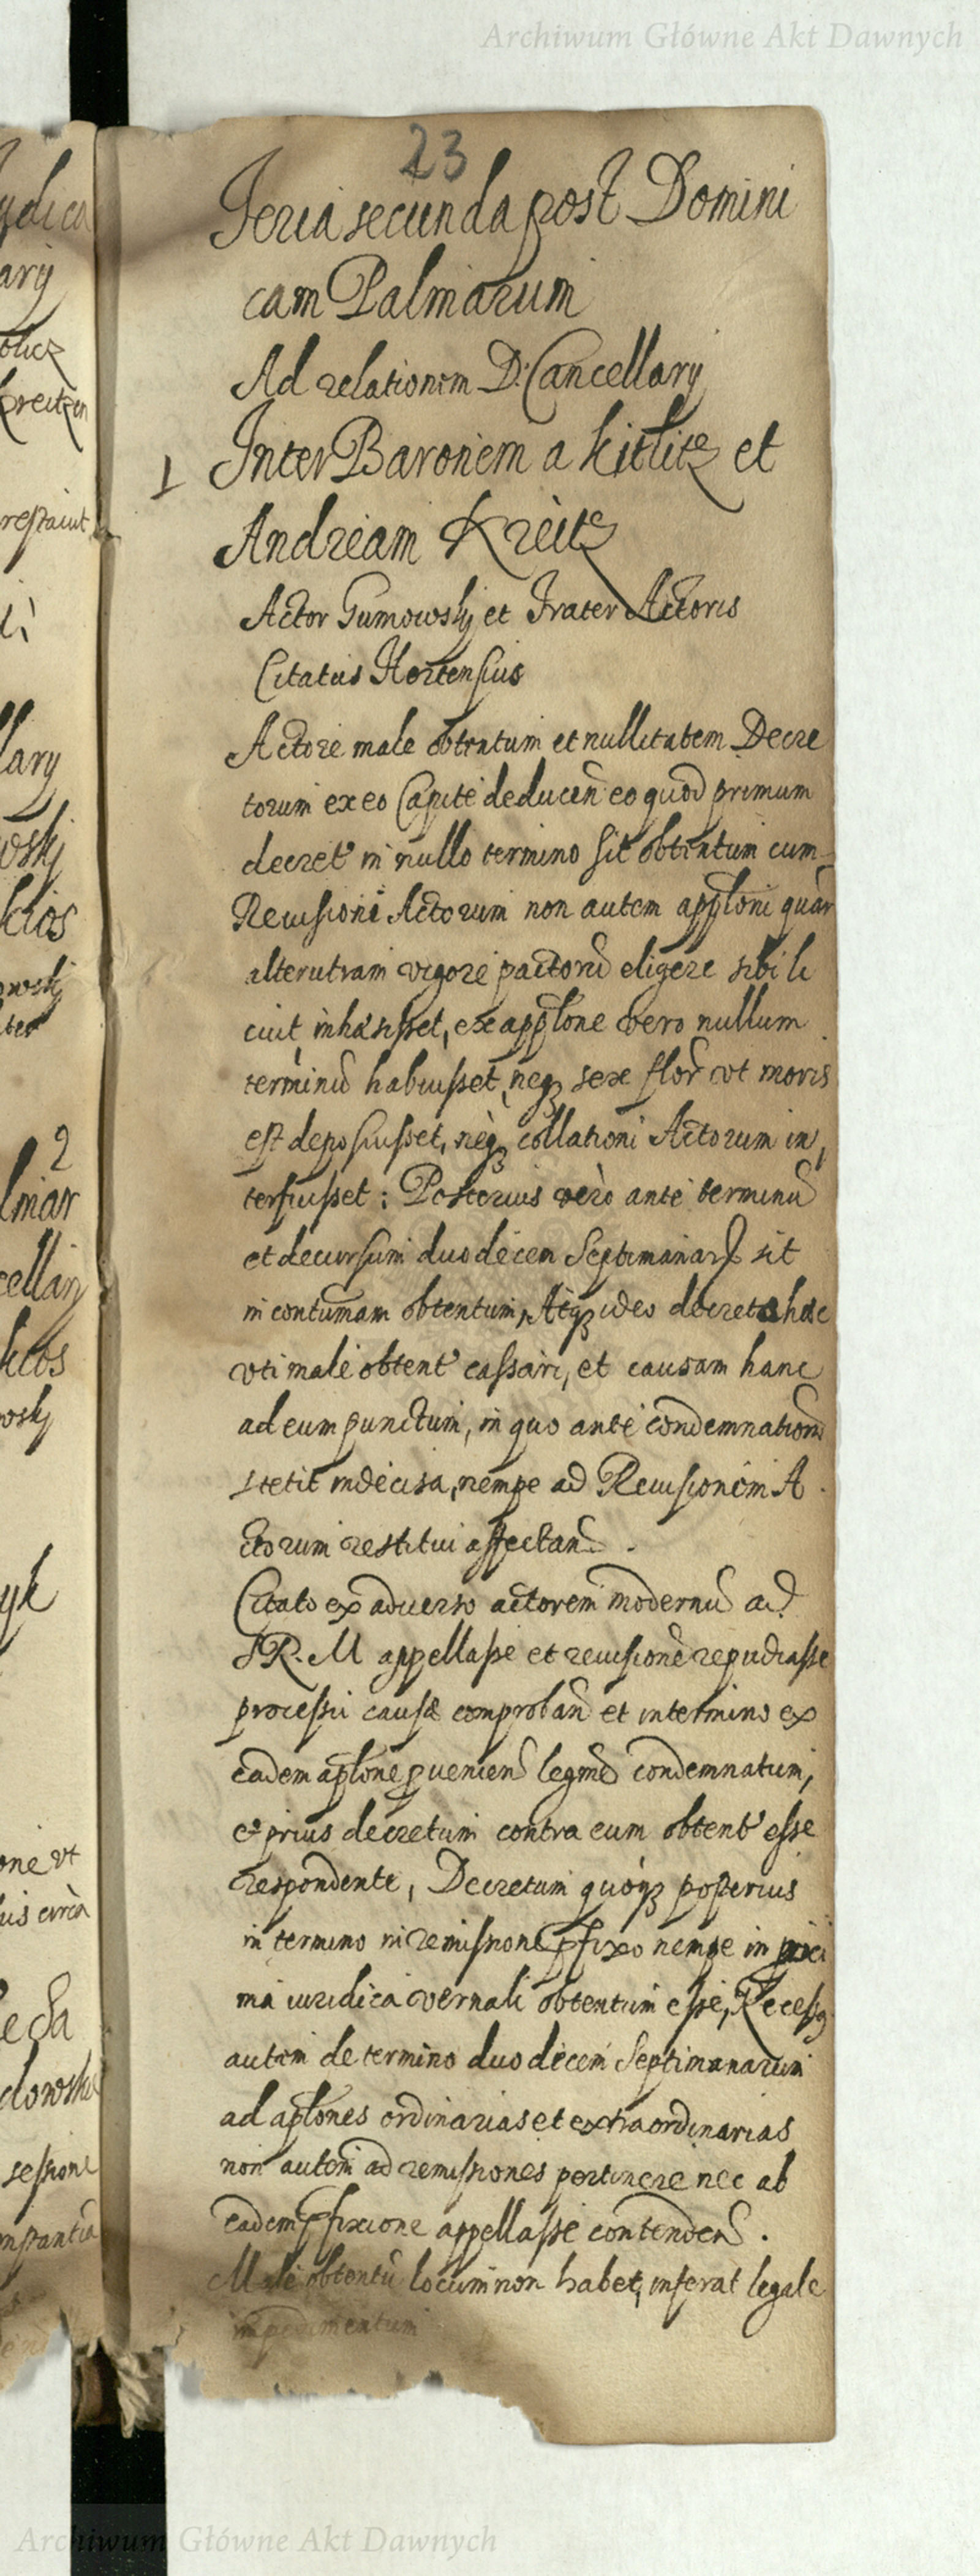 Archiwum Główne Akt Dawnych
23
Feria secunda post Domini
cam Palmarum
Ad relationem D: Cancellarij
1 Inter Baronem a Kitlitz et
Andream Kreitz
Actor Gumowskj et Frater Actoris
Citatus Hortensius
Actore male obtentum et nullitatem Decre
torum ex eo Capite deducen eo quod primum
decret in nullo termino sit obtentum cum
Reuisioni Actorum non autem apploni quar
alterutram vigore pactoru eligere sibi li
cuit, inhæsisset, ex applone vero nullum
terminu habuisset, neq sex flor vt moris
est deposuisset, neq collationi Actorum in,
terfuisset: Posterius vero ante terminu
et decursum duodecem Septimanar sit
in contumam obtentum, Atq ideo decreta hæc
vti male obtent cassari, et causam hanc
ad eum punctum, in quo ante condemnation
stetit indecisa, nempe ad Reuisionem A
ctorum restitui affectan.
Citato ex aduerso actorem modernu ad
S R. M appellasse et reuisione repudiasse
processu causæ comproban et in termino ex
eadem aplone puenien legme condemnatum,
et prius decretum contra eum obtent esse
respondente, Decretum quoq posterius
in termino in remissione pfixo nempe in pri
ma iuridica vernali obtentum esse, Recess
autem de termino duodecem Septimanarum
ad aplones ordinarias et extraordinarias
non autem ad remissiones pertinere nec ab
eadem pfixione appellasse contenden.
Male obtentu locum non habet, inferat legale
impedimentum
Archiwum Główne Akt Dawnych